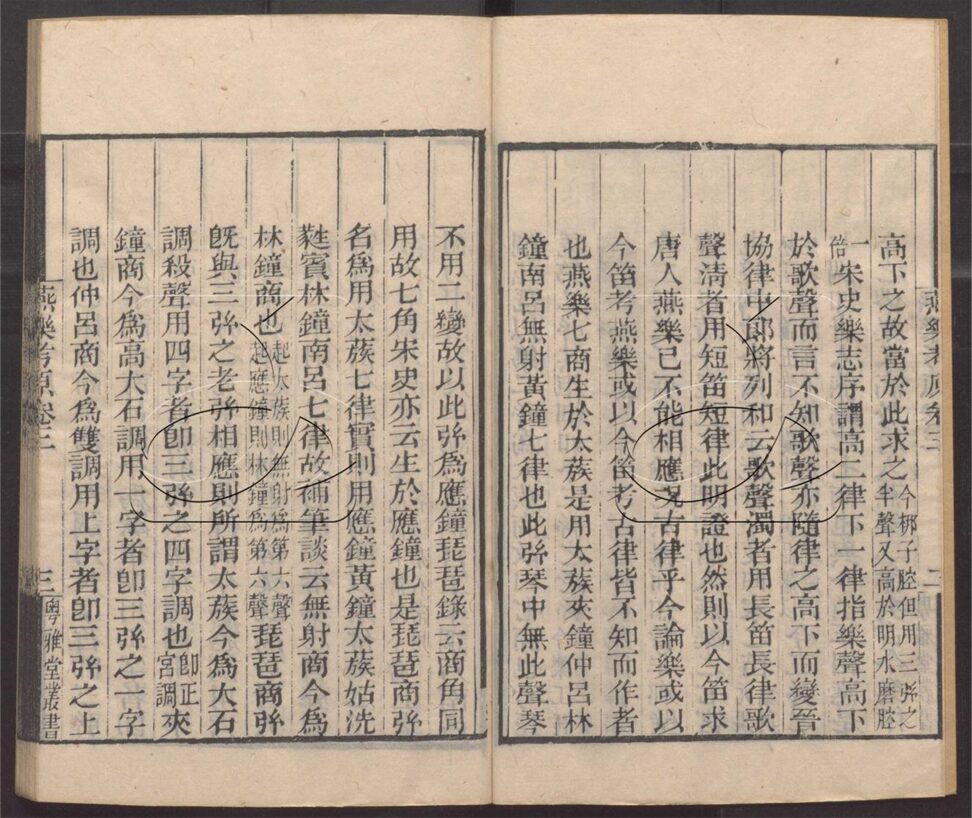 高下之故當於此求之今梆子腔但用三弦之半聲又高於明水磨腔
一宋史樂志序謂高二律下一律指樂聲高下
於歌聲而言不知歌聲亦隨律之高下而變晉
協律中郎將列和云歌聲濁者用長笛長律歌
聲清者用短笛短律此明證也然則以今笛求
唐人燕樂已不能相應况古律乎今論樂或以
今笛考燕樂或以今笛考古律皆不知而作者
也燕樂七商生於太蔟是用太蔟夾鐘仲呂林
鐘南呂無射黃鐘七律也此弦琴中無此聲琴
燕樂考原卷三
二
不用二變故以此弦為應鐘琵琶錄云商角同
用故七角宋史亦云生於應鐘也是琵琶商弦
名為用太蔟七律實則用應鐘黃鐘太蔟姑洗
蕤賓林鐘南呂七律故補筆談云無射商今為
林鐘商也起太蔟則無射為第六聲起應鐘則林鐘為第六聲琵琶商弦
旣與三弦之老弦相應則所謂太蔟今為大石
調殺聲用四字者卽三弦之四字調也卽正宮調夾
鐘商今為高大石調用一字者卽三弦之一字
調也仲呂商今為雙調用上字者卽三弦之上
燕樂考原卷三
三
粵雅堂叢書